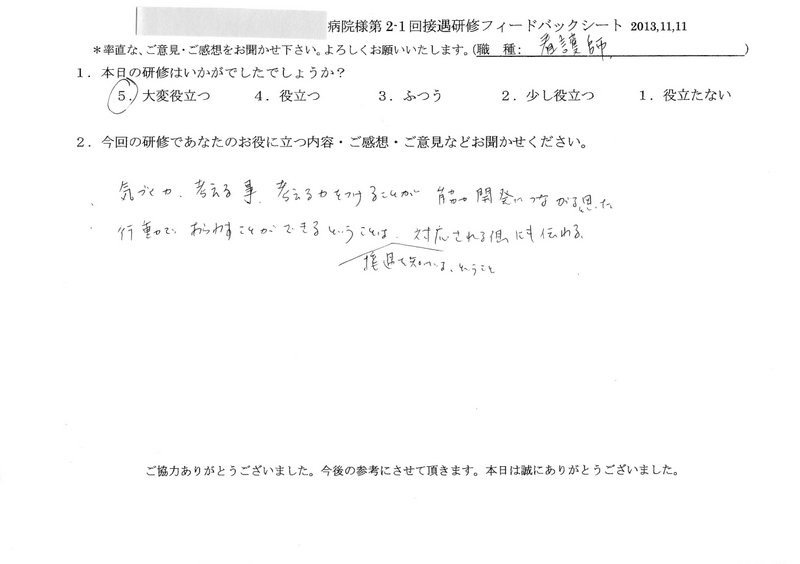 病院様第2-1回接遇研修フィードバックシート 2013,11,11
＊率直な、ご意見・ご感想をお聞かせ下さい。よろしくお願いいたします。(職 種: 看護師 )
１．本日の研修はいかがでしたでしょうか？
５．大変役立つ ４．役立つ ３．ふつう ２．少し役立つ １．役立たない
２．今回の研修であなたのお役に立つ内容・ご感想・ご意見などお聞かせください。
気づく力、考える事、考える力をつけることが 能力開発につながると思った
行動で あらわすことができるということは、対応される側にも伝わる、
接遇を知っている、ということ
ご協力ありがとうございました。今後の参考にさせて頂きます。本日は誠にありがとうございました。